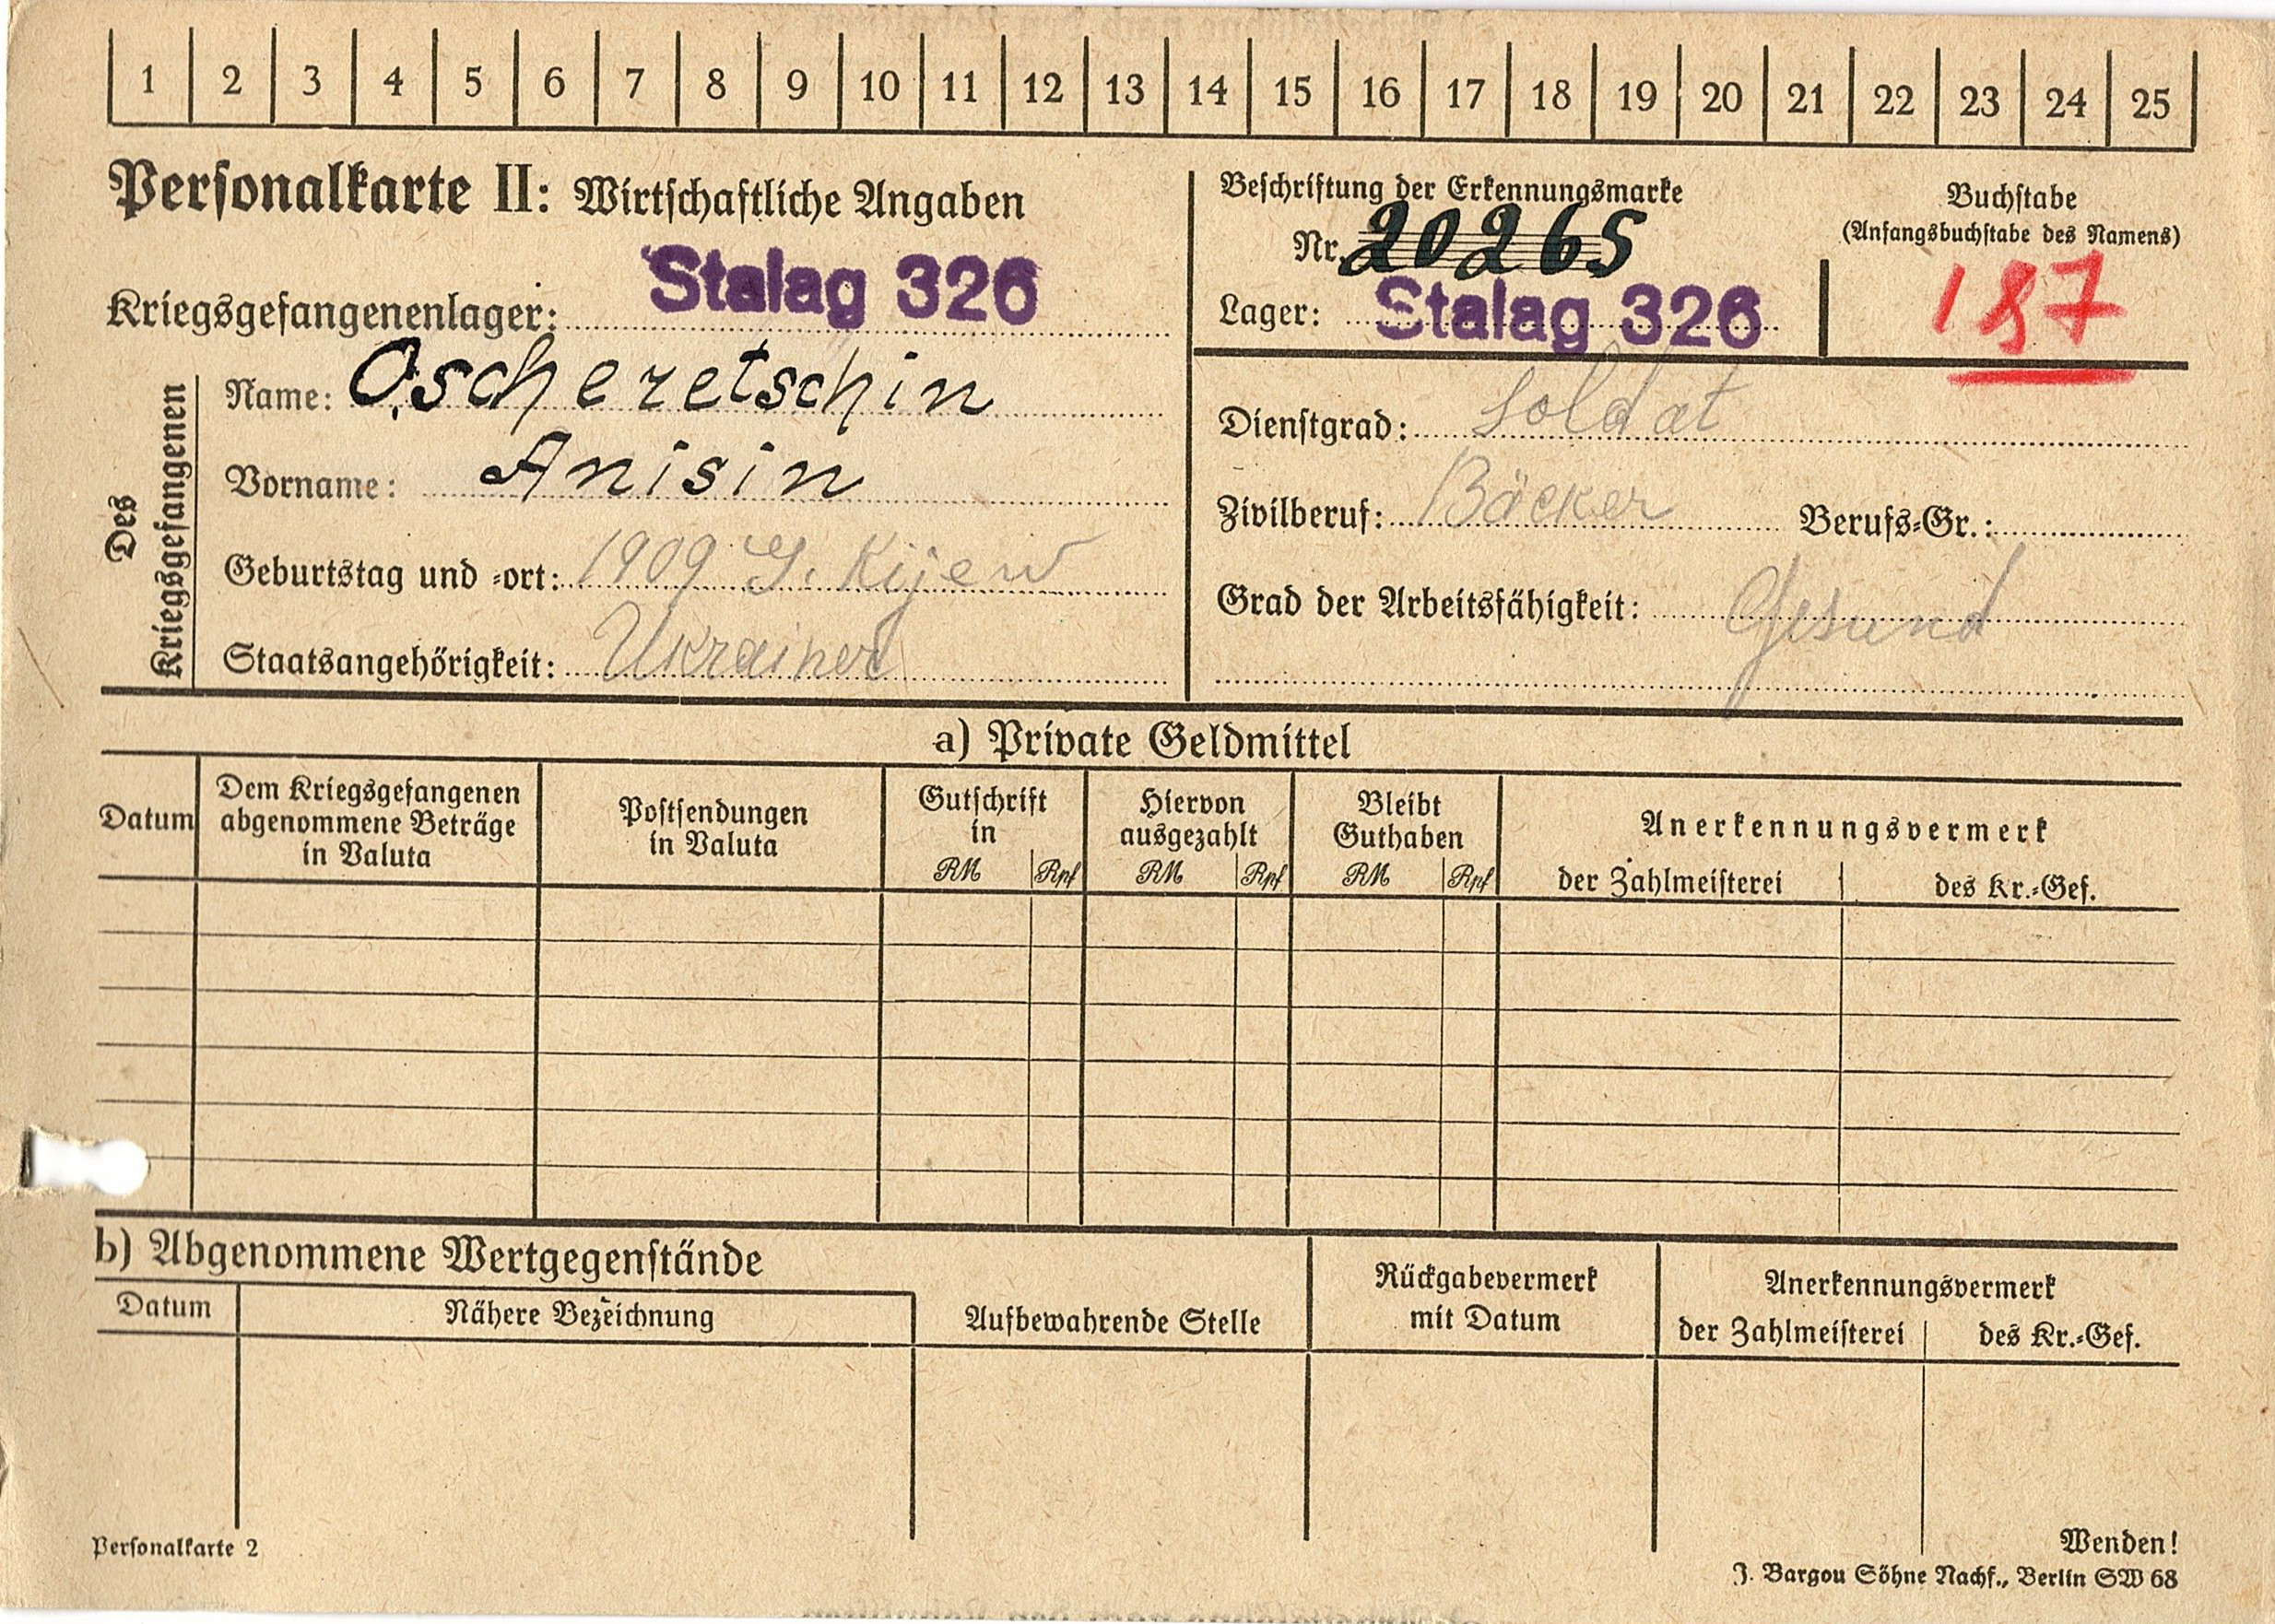 1 2 3 4 5 6 7 8 9 10 11 12 13 14 15 16 17 18 19 20 21 22 23 24 25
Personalkarte II: Wirtschaftliche Angaben
Kriegsgefangenenlager: Stalag 326
Beschriftung der Erkennungsmarke
Nr. 20265
Lager: Stalag 326
Buchstabe
(Anfangsbuchstabe des Namens)
187
Des
Kriegsgefangenen
Name: Oscheretschin
Vorname: Anisin
Geburtstag und -ort: 1909 G. Kijew
Staatsangehörigkeit: Ukrainer
Dienstgrad: Soldat
Zivilberuf: Bäcker Berufs-Gr.:
Grad der Arbeitsfähigkeit: Gesund
a) Private Geldmittel
Datum
Dem Kriegsgefangenen
abgenommene Beträge
in Valuta
Postsendungen
in Valuta
Gutschrift
in
RM Rpf
Hiervon
ausgezahlt
RM Rpf
Bleibt
Guthaben
RM Rpf
Anerkennungsvermerk
der Zahlmeisterei des Kr.-Gef.
b) Abgenommene Wertgegenstände
Datum Nähere Bezeichnung
Aufbewahrende Stelle
Rückgabevermerk
mit Datum
Anerkennungsvermerk
der Zahlmeisterei des Kr.-Gef.
Personalkarte 2
Wenden!
J. Bargou Söhne Nachf., Berlin SW 68